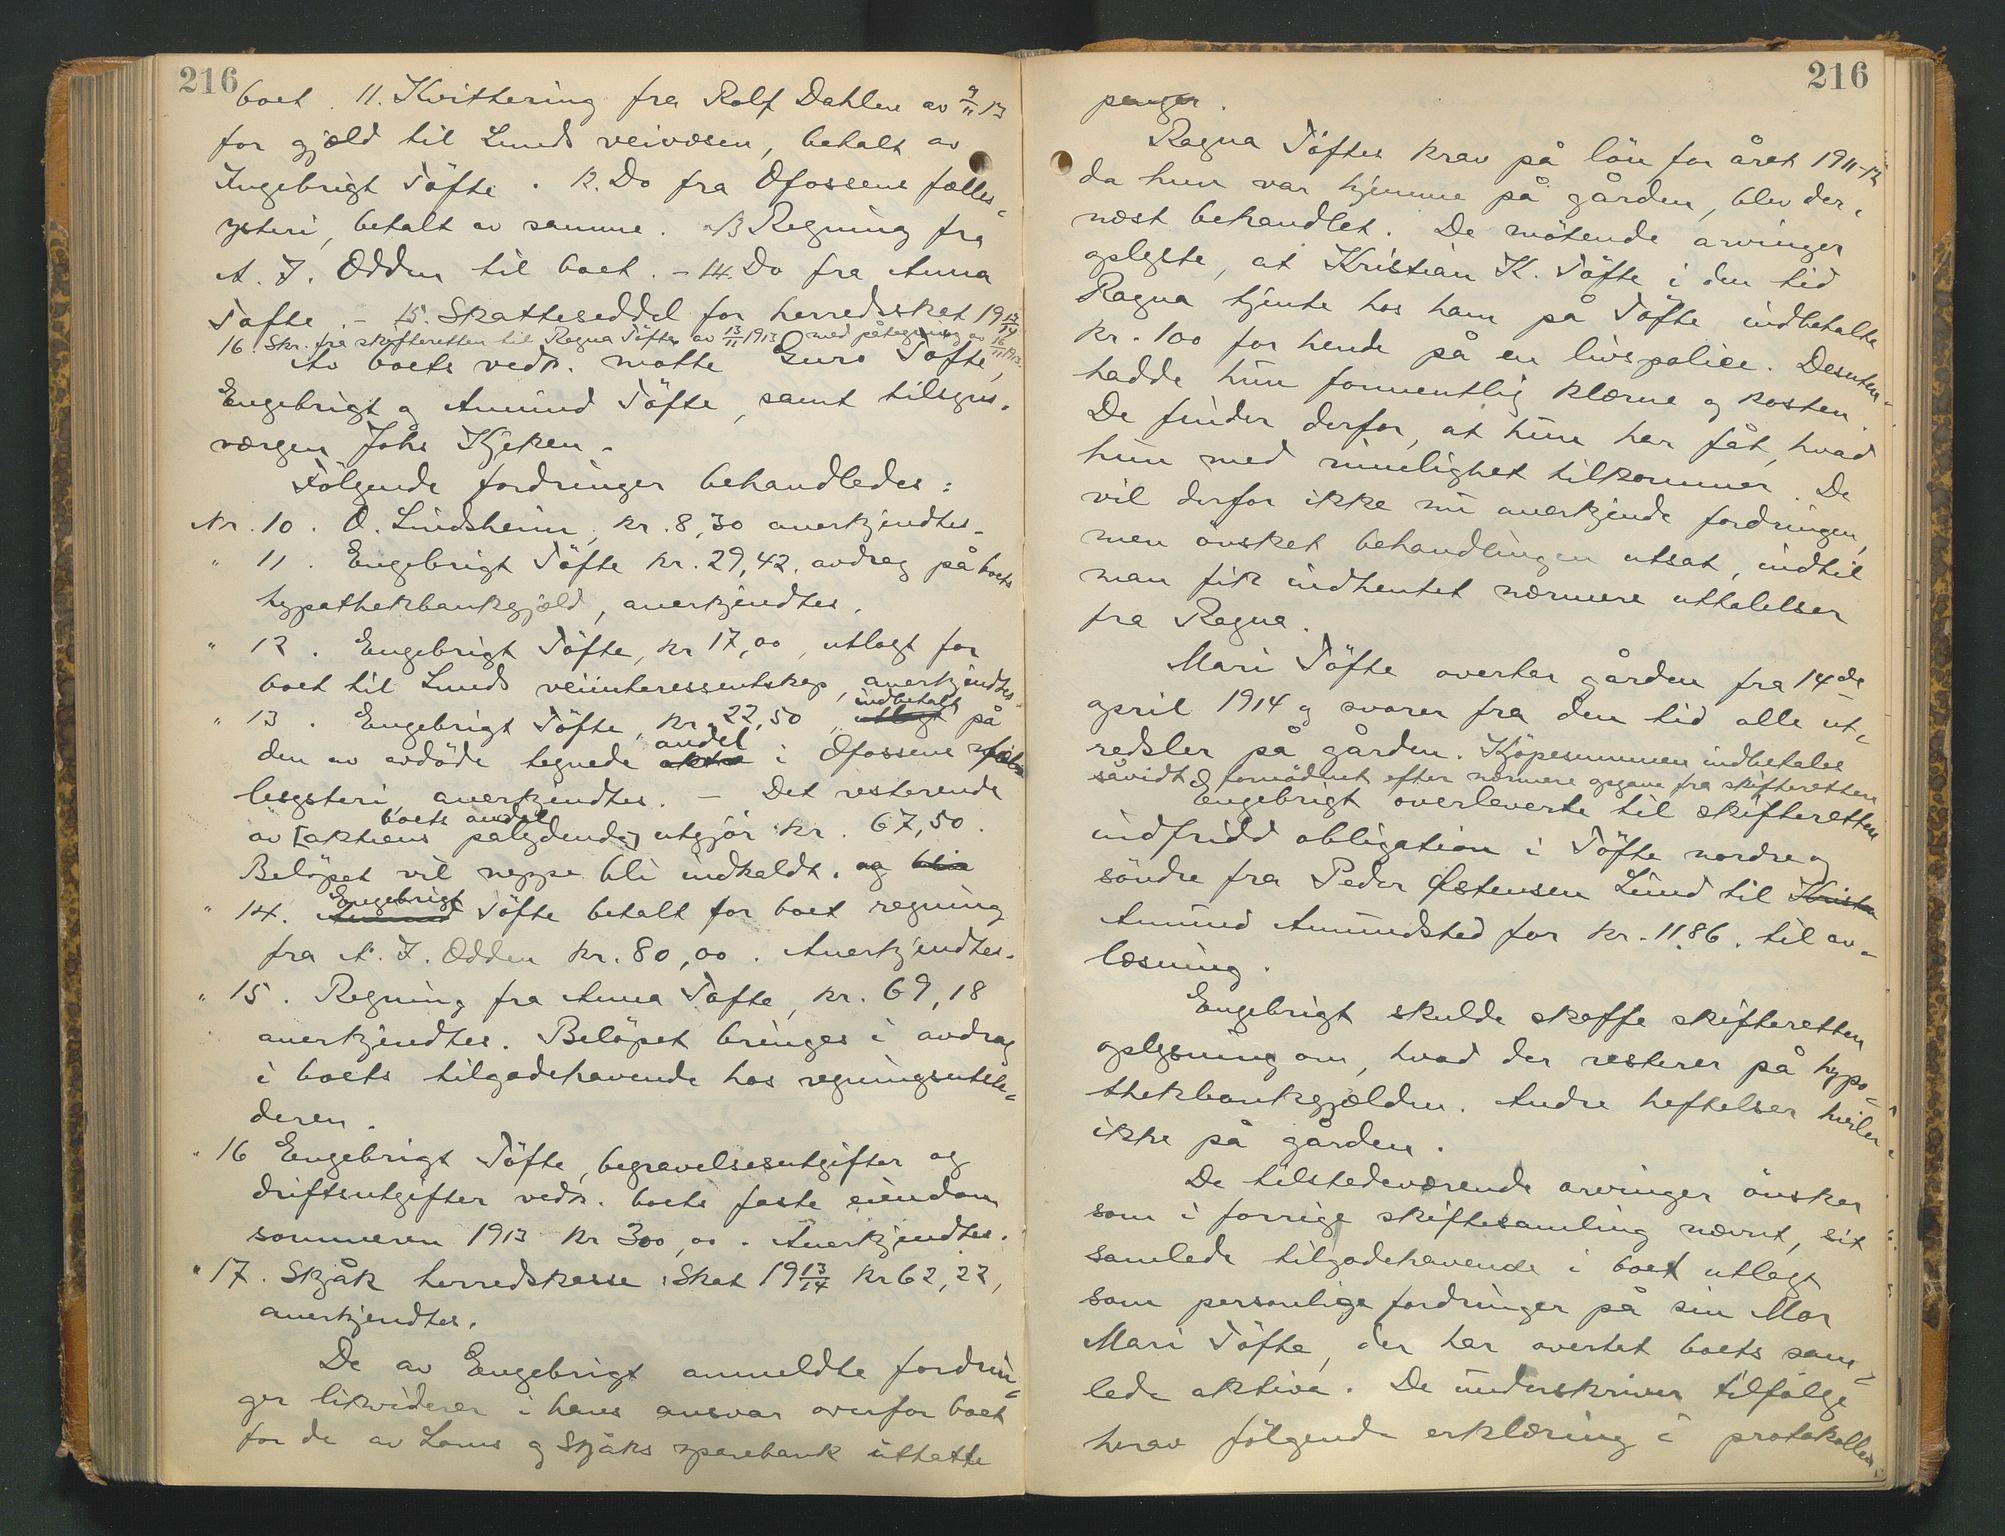 216
boet. 11. Kvittering fra Rolf Dahlen av 9/11 13
for gjæld til Lunds veivæsen, betalt av
Ingebrigt Töfte. 12. Do fra Ofossens fælles-
ysteri, betalt av samme. 13 Regning fra
A. J. Odden til boet. - 14. Do fra Anna
Töfte. - 15. Skatteseddel for herredsskat 19 13/14
16. Skr. fra skifteretten til Ragna Töfte av 13/11 1913 med påtegning av 16/11 1913.
Av boets vedk. mötte Guro Töfte,
Engebrigt og Amund Töfte, samt tilsyns-
værgen Johs Kjeken.
Følgende fordringer behandledes:
Nr. 10. O. Lindsheim, kr. 8,30 anerkjendtes.
" 11. Engebrigt Töfte kr. 29,42, avdrag på boets
hypothekbankgjæld, anerkjendtes.
" 12. Engebrigt Töfte, kr 17,00, utlagt for
boet til Lunds veiinteressentskap, anerkjendtes.
" 13. Engebrigt Töfte, kr. 22,50, utlagt indbetalt på
den av avdöde tegnede aktie andel i Ofossens fæl-
lesysteri, anerkjendtes. - Det resterende
av [aktiens boets andel pålydende] utgjör kr. 67,50.
Belöpet vil neppe bli indkaldt. og blir
" 14. Amund Engebrigt Töfte betalt for boet regning
fra A. J. Odden kr. 80,00. Anerkjendtes.
" 15. Regning fra Anna Töfte, kr. 69,18
anerkjendtes. Belöpet bringes i avdrag
i boets tilgodehavende hos regningsutste-
deren.
" 16 Engebrigt Töfte, begravelsesutgifter og
driftsutgifter vedk. boets faste eiendom
sommeren 1913 kr 300,00. Anerkjendtes.
" 17. Skjåk herredskasse: Skat 19 13/14 kr 62,22,
anerkjendtes.
De av Engebrigt anmeldte fordrin-
ger likviderer i hans ansvar overfor boet
for de av Loms og Skjåks sparebank uttatte
216
penger.
Ragna Töftes krav på lön for året 1911-12
da hun var hjemme på gården, blev der-
næst behandlet. De mötende arvinger
oplyste, at Kristian K. Töfte i den tid
Ragna tjente hos ham på Töfte indbetalte
kr. 100 for hende på en livspolice. Desuten
hadde hun formentlig klærne og kosten.
De finder derfor, at hun har fåt, hvad
hun med rimelighet tilkommer. De
vil derfor ikke nu anerkjende fordringen,
men ønsket behandlingen utsat, indtil
man fik indhentet nærmere uttalelser
fra Ragna.
Mari Töfte overtar gården fra 14de
april 1914 og svarer fra den tid alle ut-
redsler på gården. Kjöpesummen indbetales
såvidt fornødent efter nærmere opgave fra skifteretten
Engebrigt overleverte til skifteretten
indfridd obligation i Töfte nordre og
söndre fra Peder Østensen Lund til Kristia
Amund Amundstad for kr. 1186. til av-
læsning.
Engebrigt skulde skaffe skifteretten
oplysning om, hvad der resterer på hypo-
thekbankgjælden. Andre heftelser hviler
ikke på gården.
De tilstedeværende arvinger önsker
som i forrige skiftesamling nævnt, sit
samlede tilgodehavende i boet utlagt
som personlige fordringer på sin Mor
Mari Töfte, der har overtat boets sam-
lede aktiva. De underskriver tilfölge
herav fölgende erklæring i protokollen